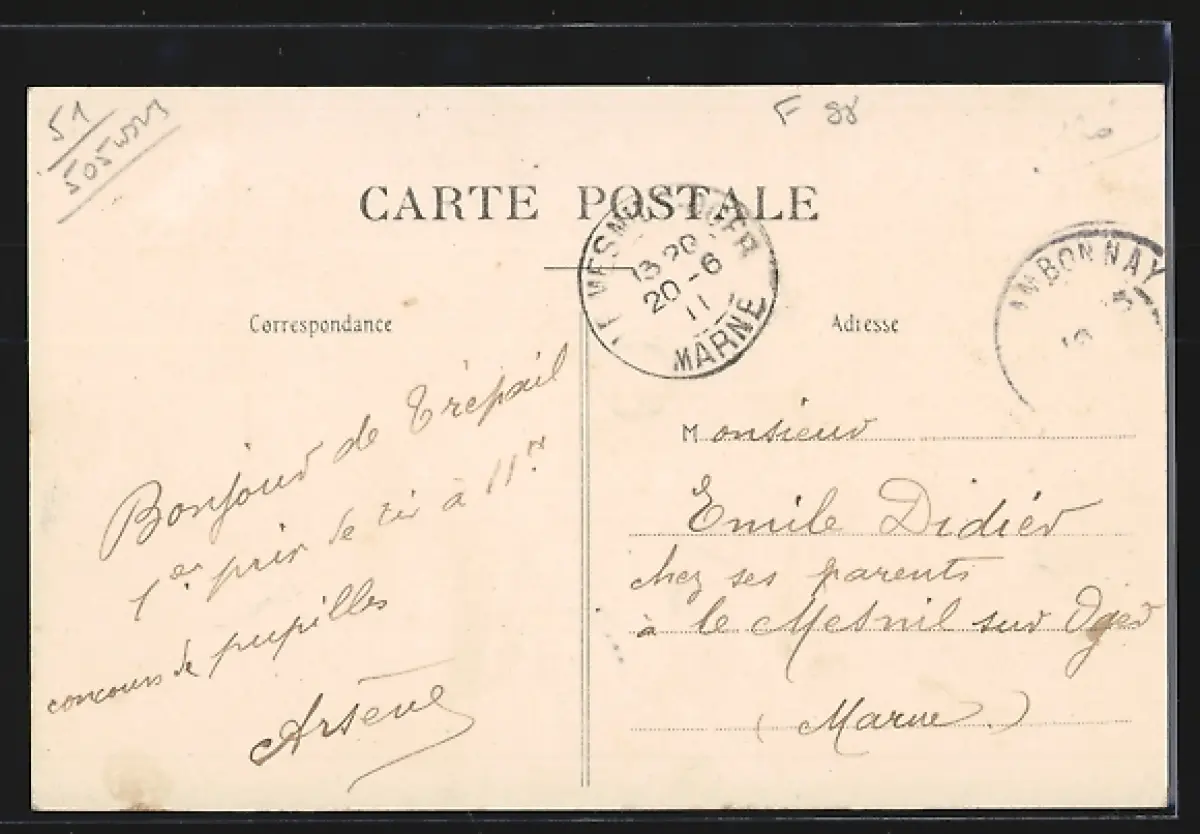 51
F 98
CARTE POSTALE
LE MESNIL-S-OGER
13 20
20 - 6
11
MARNE
AMBONNAY
Correspondance
Adresse
Bonjour de Trépail
1er prix de tir à 11m
concours de pupilles
Arsène
Monsieur
Emile Didier
chez ses parents
à le Mesnil sur Oger
(Marne)